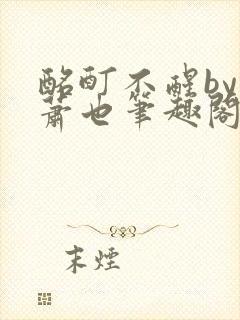 酩酊不醒by
萧也笔趣阁
末烟